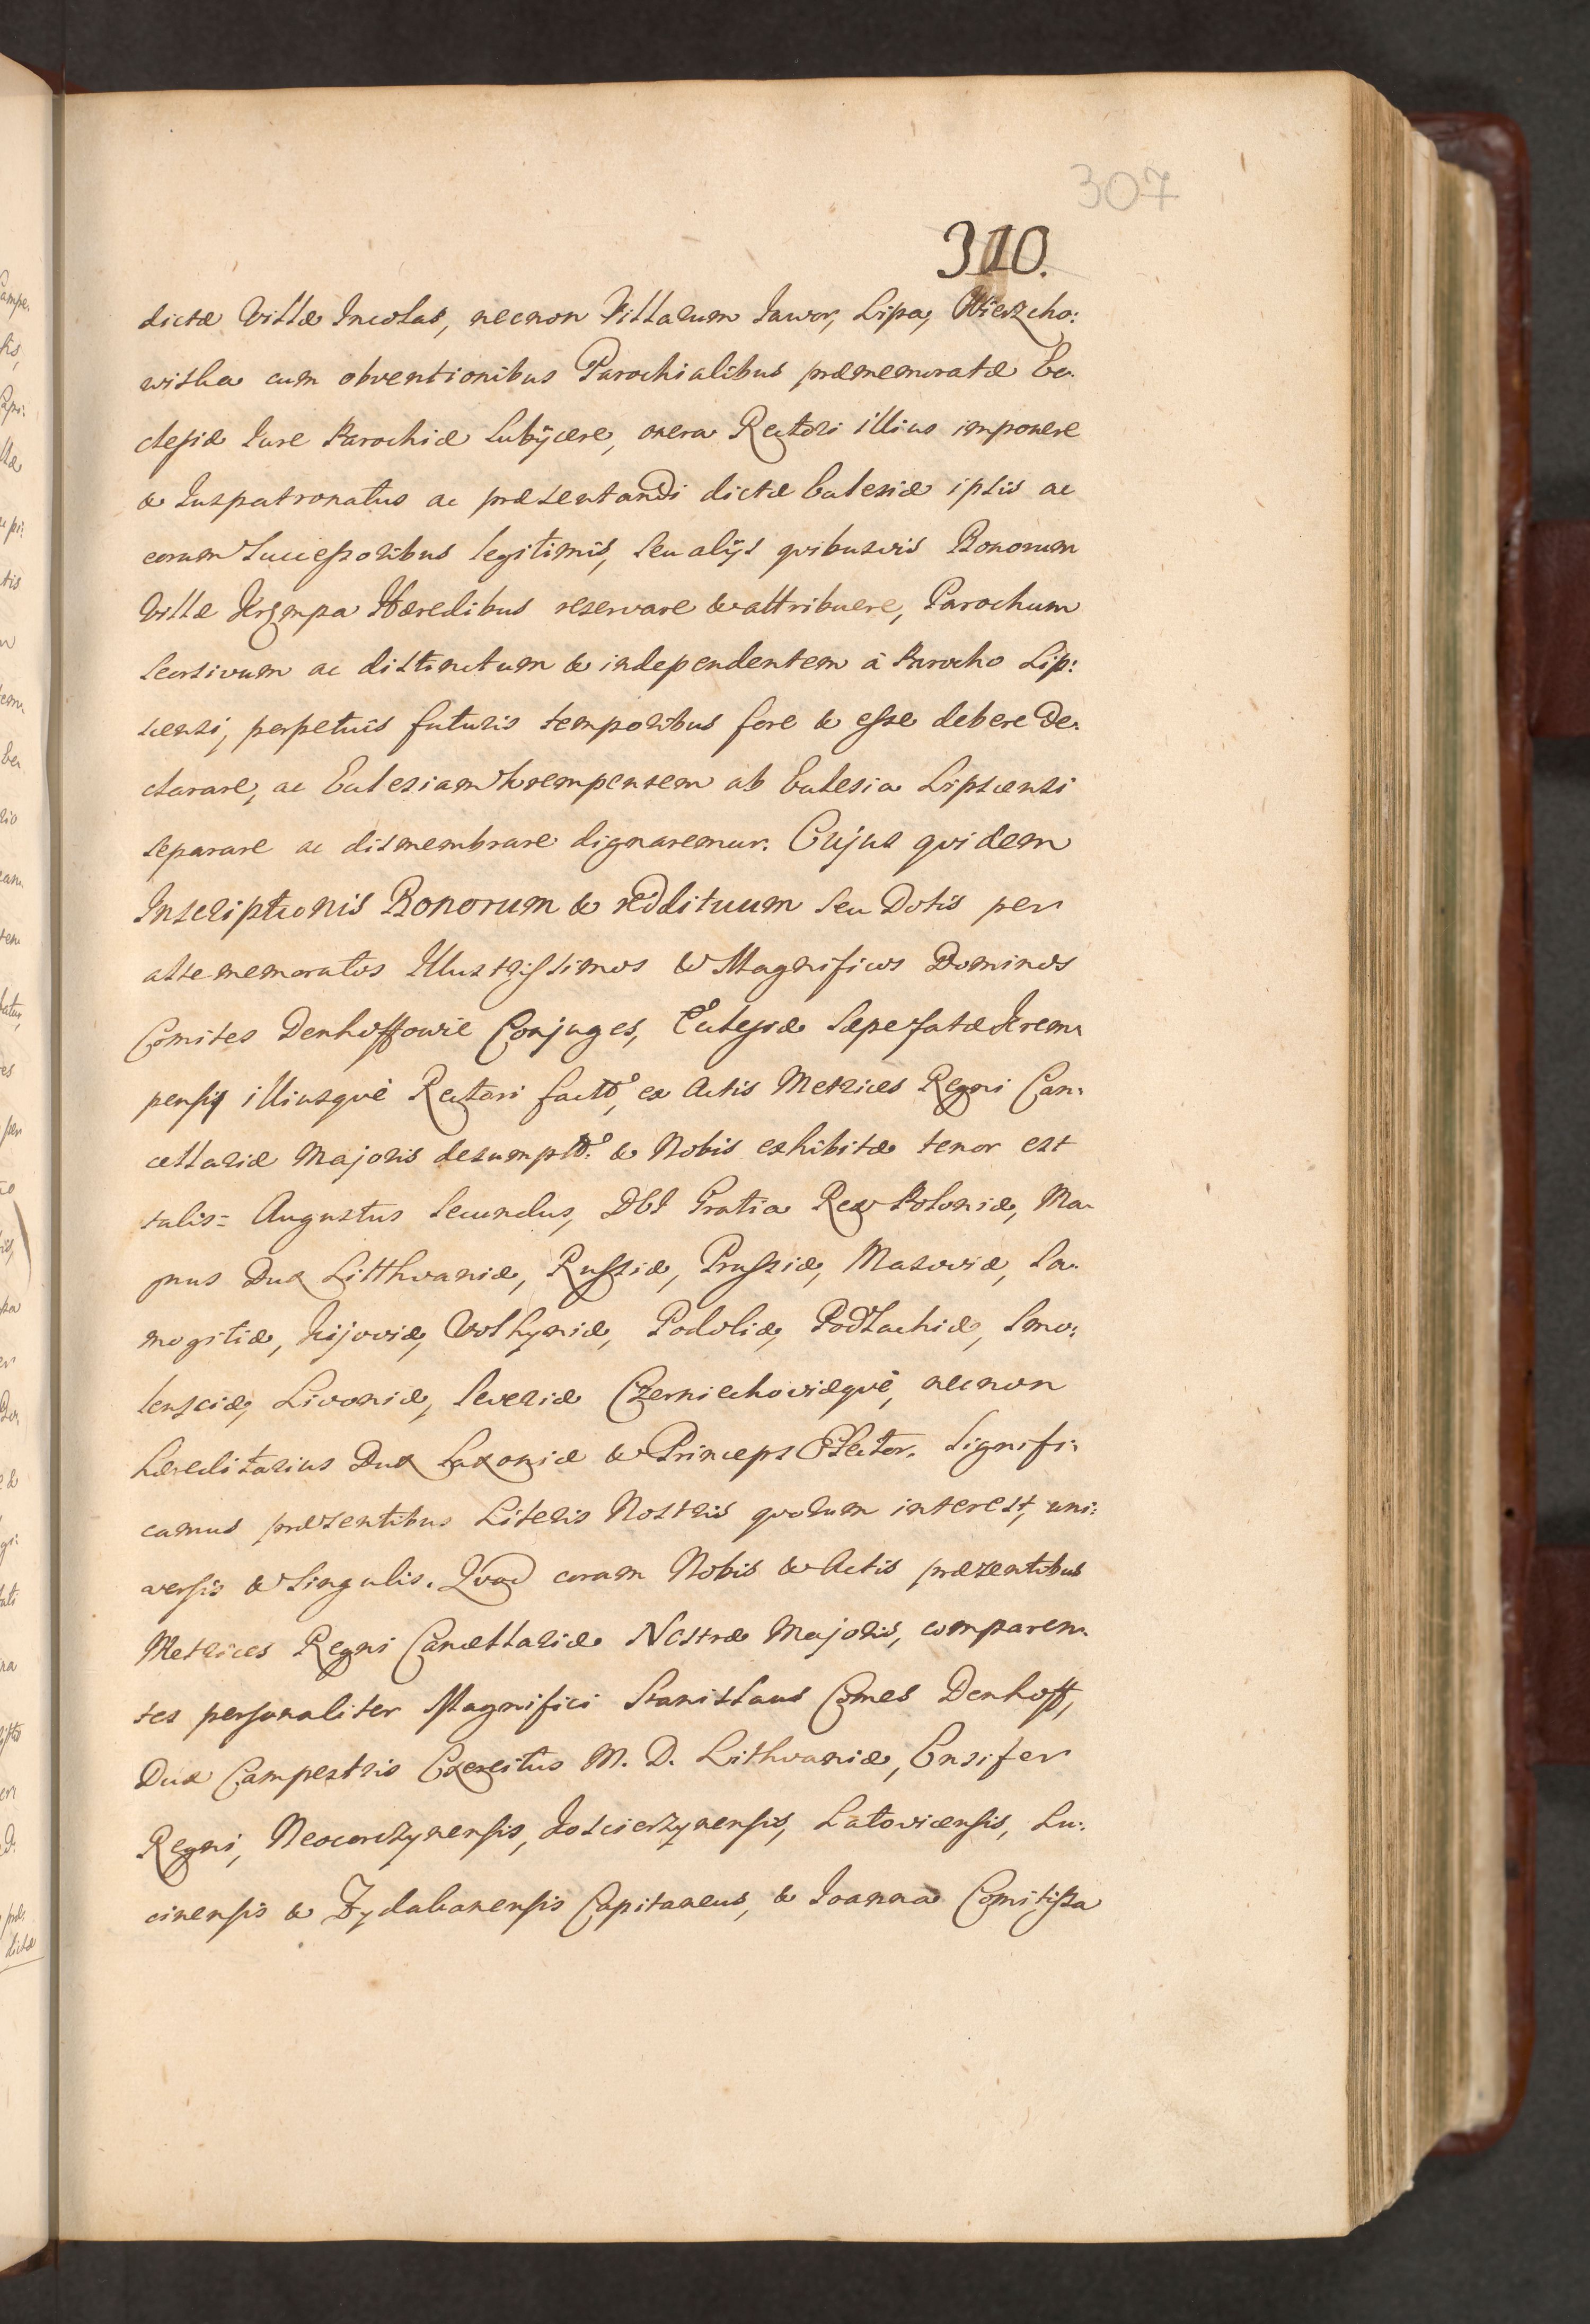 307
310.
dictæ Villæ Incolas, necnon Villarum Jawor, Lipa, Wierzcho:
wiska cum obventionibus Parochialibus præmemoratæ Ec-
clesiæ Jure Parochiæ Subÿcere, onera Rectori illius imponere
& Juspatronatus ac præsentandi dictæ Eclesiæ ipsis ac
eorum Successoribus legitimis, seu alÿs qvibusvis Bonorum
Villæ Krzmpa Hæredibus reservare & attribuere, Parochum
Seorsivum ac distinctum & independentem à Parocho Lip:
scensi, perpetuis futuris temporibus fore & esse debere de-
clarare, ac Eclesiam Krempensem ab Eclesia Lipscensi
separare ac dismembrare dignaremur. Cujus qvidem
Inscriptionis Bonorum & reddituum seu Dotis per
altememoratos Illustrissimos & Magnificos Dominos
Comites Denhoffowie Conjuges, Eclesiæ Sæpefatæ Krem-
pensis illiusqvè Rectori factæ, ex Actis Metrices Regni Can-
cellariæ Majoris desumptæ & Nobis exhibitæ tenor est
talis= Augustus Secundus, DEI Gratia Rex Poloniæ, Ma-
gnus Dux Litthvaniæ, Russiæ, Prussiæ, Masoviæ, Sa-
mogitiæ, Kijoviæ, Volhyniæ, Podoliæ, Podlachiæ, Smo:
lensciæ, Livoniæ, Severiæ Czerniechoviæqvè, necnon
hæreditarius Dux Saxoniæ & Princeps Elector. Signifi-
camus præsentibus Literis Nostris qvorum interest, uni:
versis & Singulis. Qvod coram Nobis & Actis præsentibus
Metrices Regni Cancellariæ Nostræ Majoris, comparen-
tes personaliter Magnifici Stanislaus Comes Denhoff,
Dux Campestris Exercitus M. D. Lithvaniæ, Ensifer
Regni, Neocorczynensis, Koscierzynensis, Latovicensis, Lu-
cinensis & Zydabanensis Capitaneus, & Joanna Comitissa